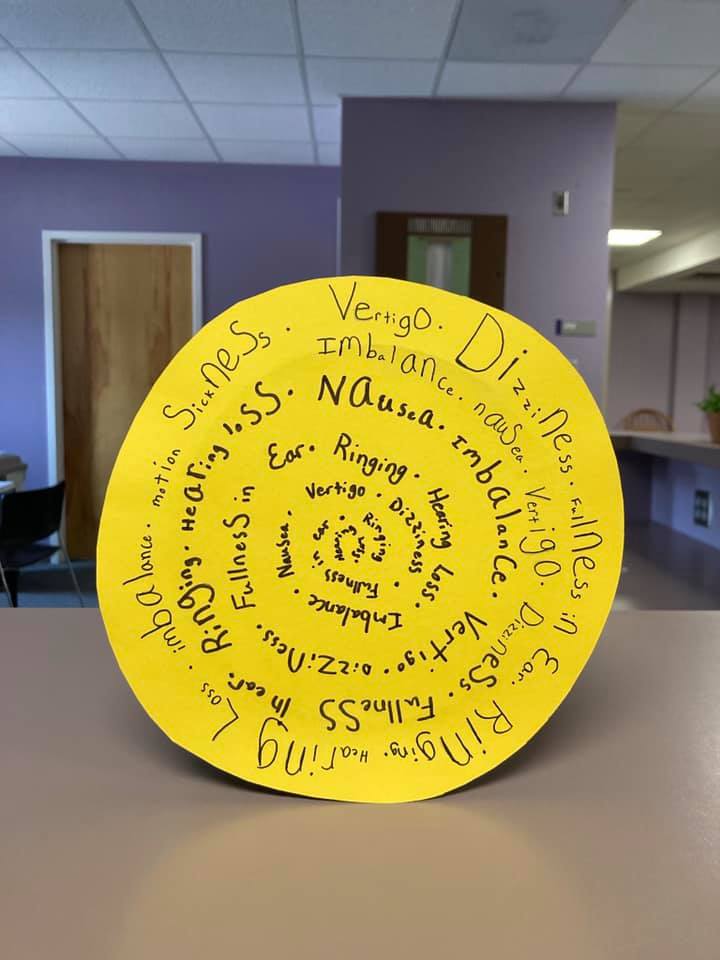 Vertigo. Dizziness. Fullness in Ear. Ringing. Hearing Loss. imbalance. motion Sickness.
Imbalance. nausea. Vertigo. Dizziness. Fullness in ear. Ringing. Hearing loss.
Nausea. Imbalance. Vertigo. Dizziness. Fullness in Ear.
Ringing. Hearing Loss. Imbalance. Nausea.
Vertigo. Dizziness. Fullness in ear.
Ringing